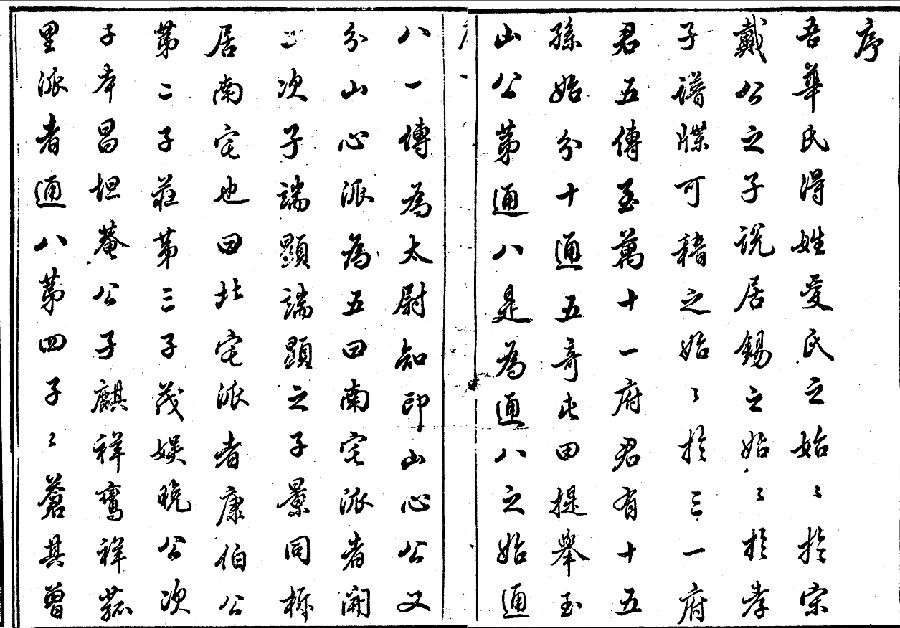 序
吾華氏得姓受氏之始〻於宋
戴公之子說居錫之始〻於孝
子譜牒可稽之始〻於三一府
君五傳至萬十一府君有十五
孫始分十通五奇屯田提舉至
山公第通八是為通八之始通
八一傳為太尉知印山心公又
分山心派為五曰南宅派者開
二次子端顯端顯之子景同祢
居南宅也曰北宅派者康伯公
第二子莊第三子茂娛晚公次
子孝昌坦菴公子麒祥鸞祥
里派者通八第四子〻蒼其曾